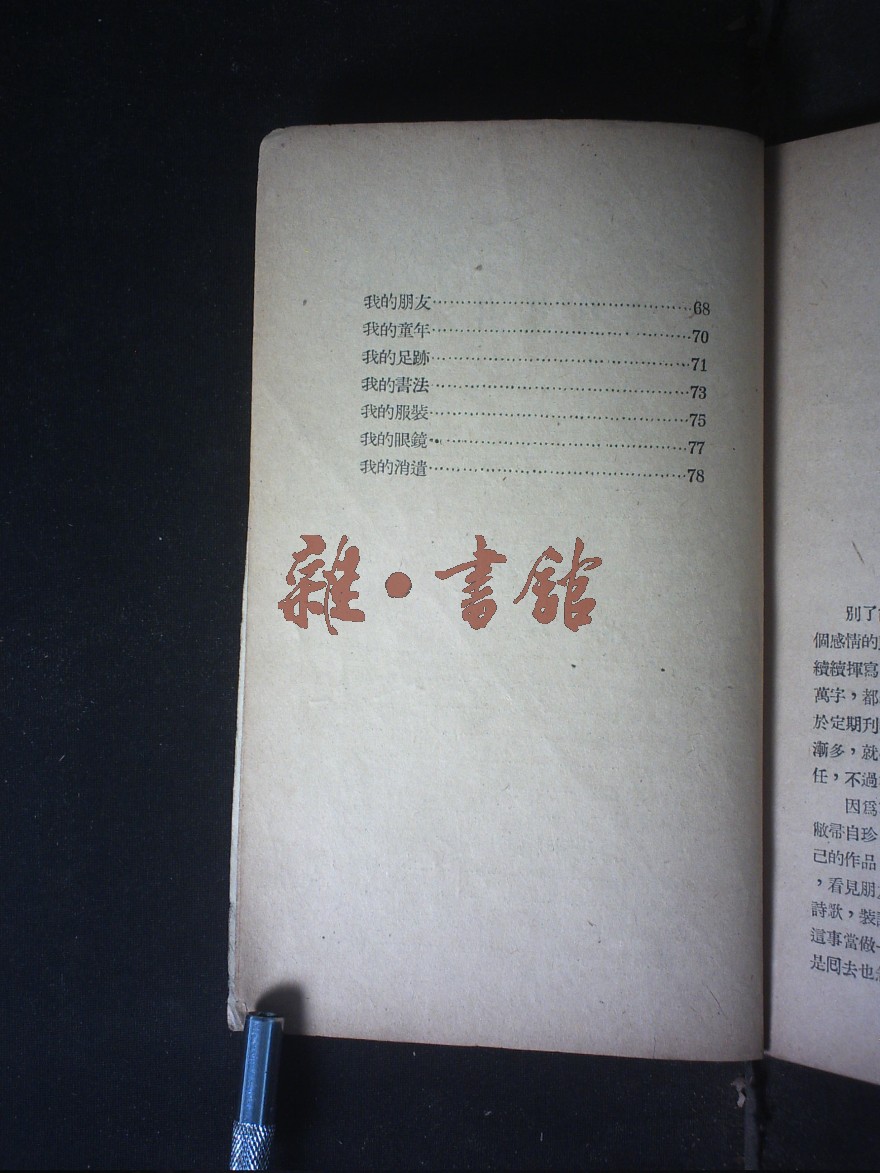 我的朋友……………………………………68
我的童年……………………………………70
我的足跡……………………………………71
我的書法……………………………………73
我的服裝……………………………………75
我的眼鏡……………………………………77
我的消遣……………………………………78
雜·書館
別了
個感情的
續續揮寫
萬字，都
於定期刊
漸多，就
任，不過
因爲
敝帚自珍
己的作品
，看見朋
詩歌，裝
這事當做
是囘去也